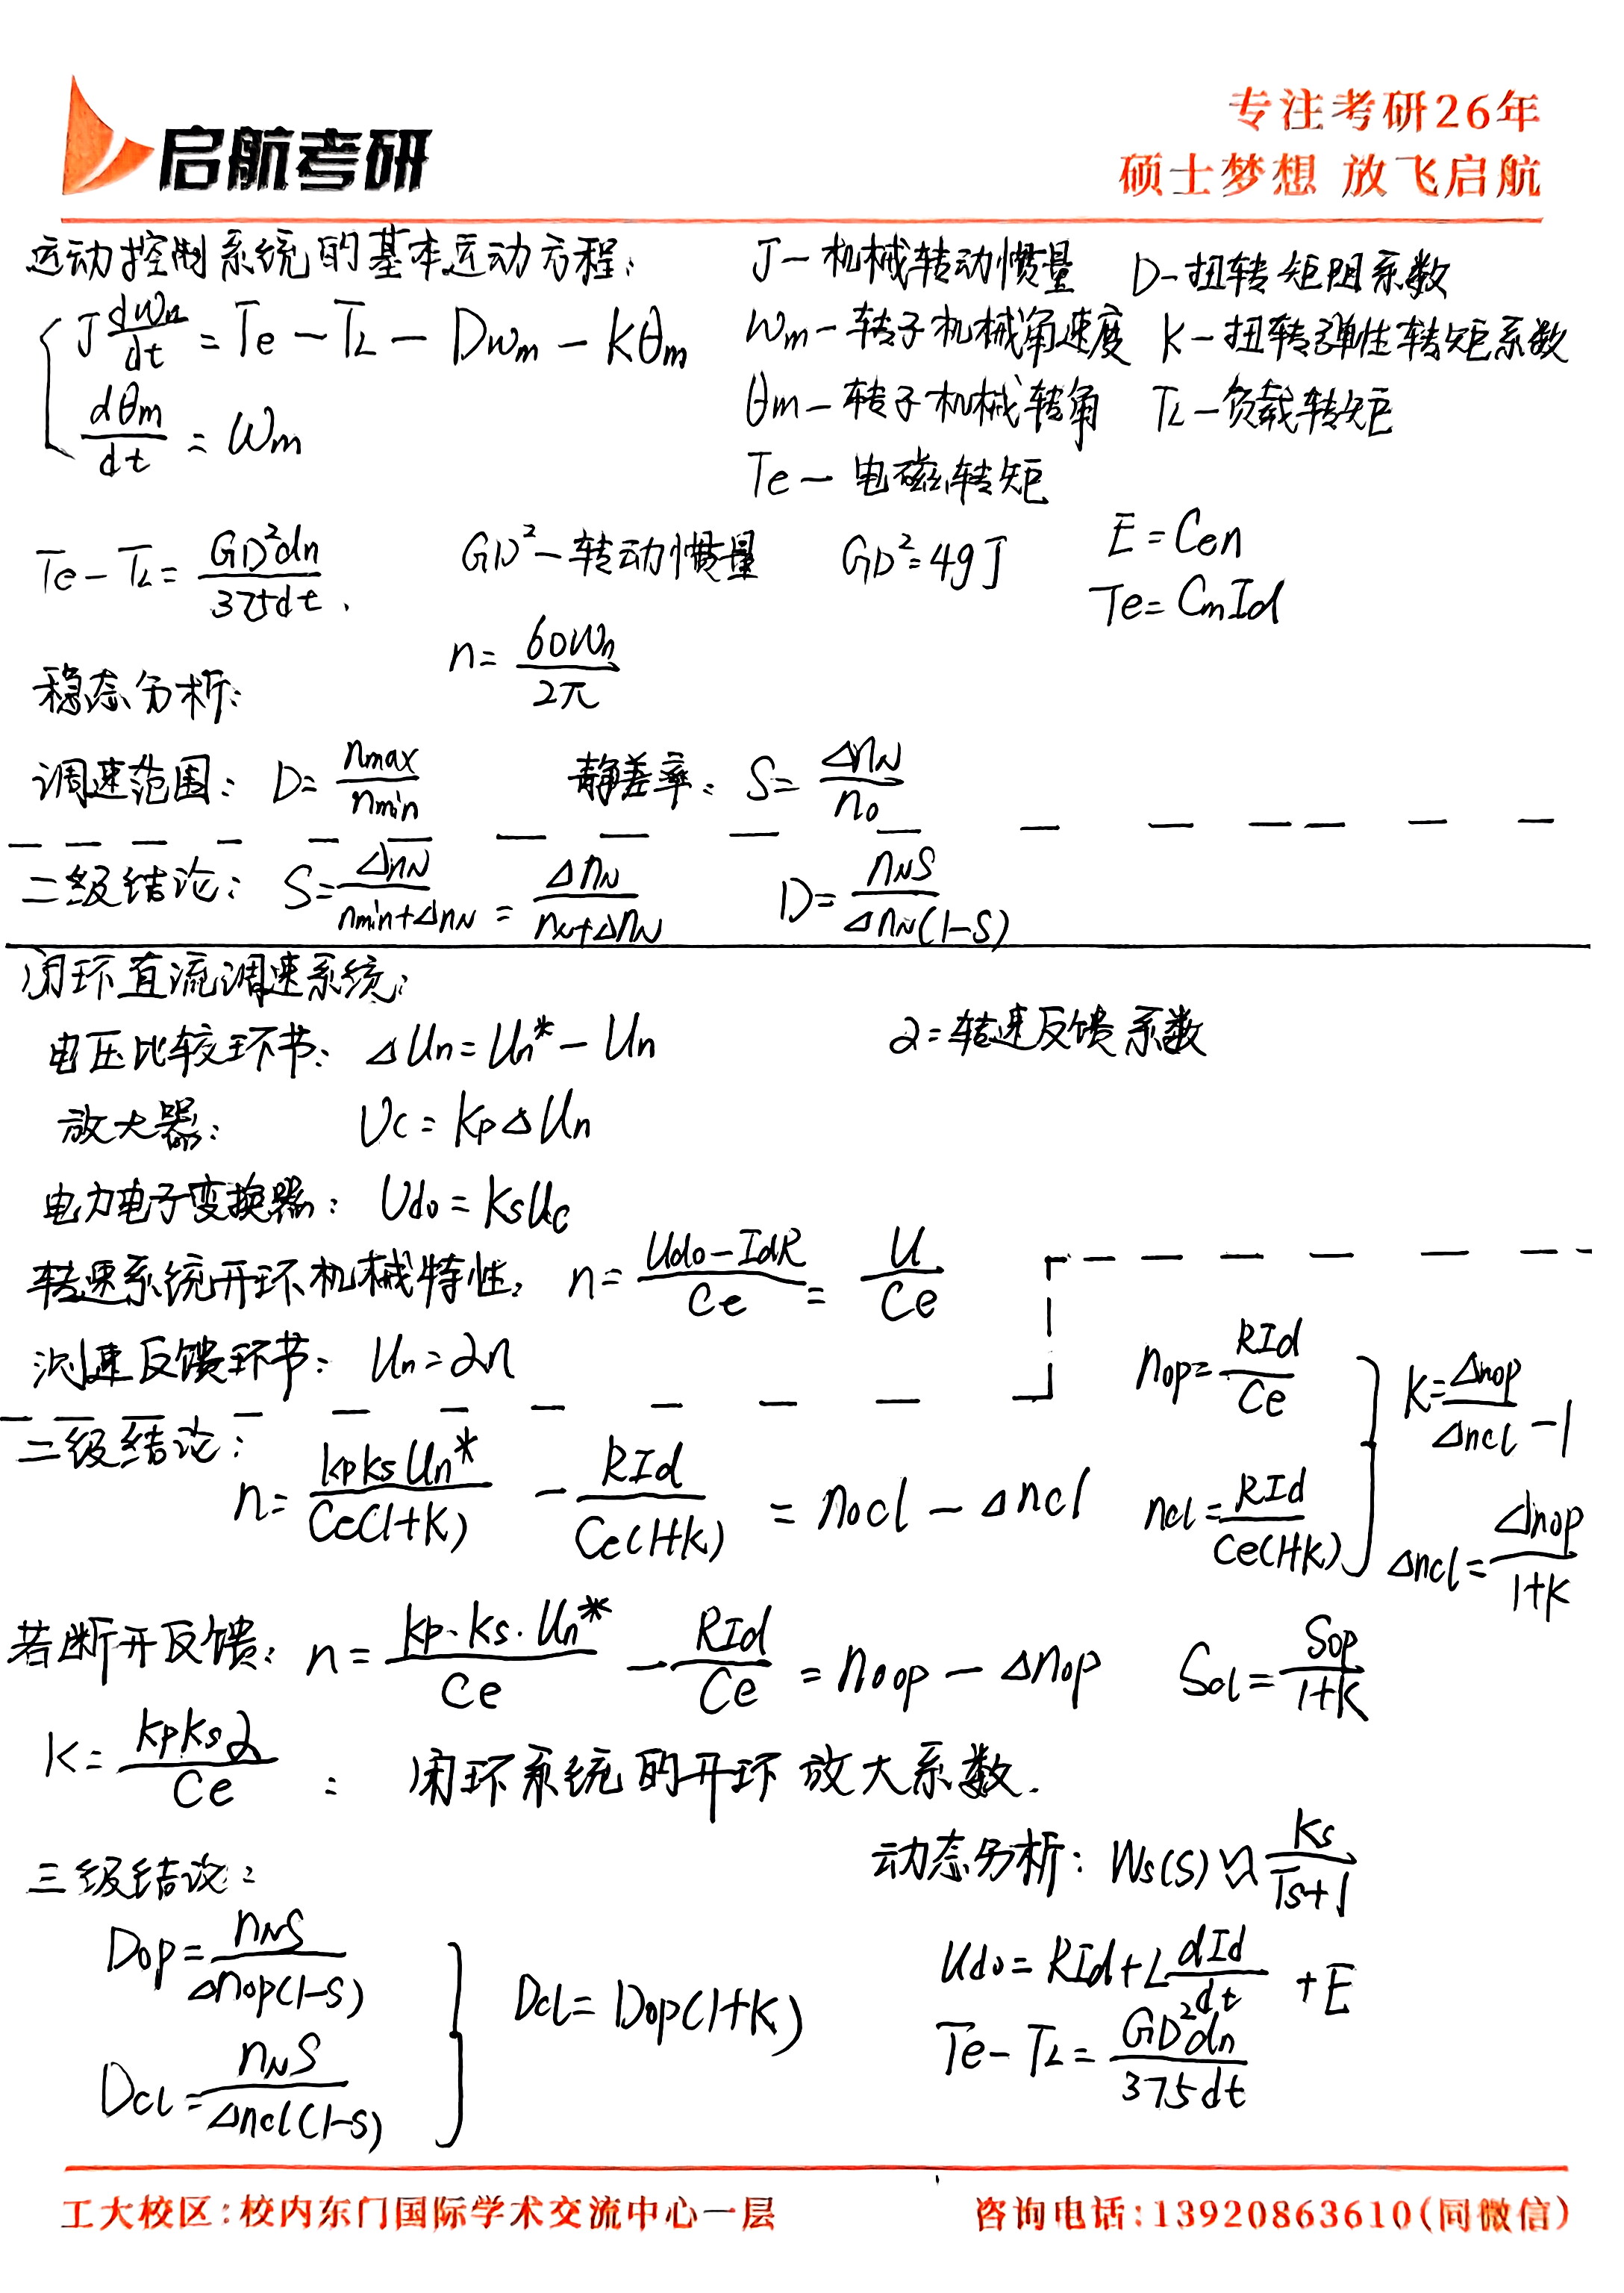 启航考研
专注考研26年
硕士梦想 放飞启航
运动控制系统的基本运动方程:
J dωm/dt = Te - TL - Dωm - Kθm
dθm/dt = ωm
J - 机械转动惯量 D - 扭转矩阻系数
ωm - 转子机械角速度 K - 扭转弹性转矩系数
θm - 转子机械转角 TL - 负载转矩
Te - 电磁转矩
Te - TL = GD²dn/375dt. GD² - 转动惯量 GD² = 4gJ E = Cen
Te = CmId
n = 60ωm/2π
稳态分析:
调速范围: D = nmax/nmin 静差率: S = ΔnN/n0
二级结论: S = ΔnN/(nmin+ΔnN) = ΔnN/(nN+ΔnN) D = nNS/ΔnN(1-S)
闭环直流调速系统:
电压比较环节: ΔUn = Un* - Un α = 转速反馈系数
放大器: Uc = KpΔUn
电力电子变换器: Ud0 = KsUc
转速系统开环机械特性, n = (Ud0 - IdR)/Ce = U/Ce
测速反馈环节: Un = αn
二级结论:
n = KpKsUn*/Ce(1+K) - RId/Ce(1+K) = n0cl - Δncl
nop = RId/Ce
ncl = RId/Ce(1+K)
K = Δnop/Δncl - 1
Δncl = Δnop/(1+K)
若断开反馈: n = Kp·Ks·Un*/Ce - RId/Ce = n0op - Δnop Scl = Sop/(1+K)
K = KpKsα/Ce : 闭环系统的开环放大系数.
三级结论:
Dop = nNS/Δnop(1-S)
Dcl = nNS/Δncl(1-S)
Dcl = Dop(1+K)
动态分析: Ws(S) ≈ Ks/(Ts+1)
Ud0 = RId + L dId/dt + E
Te - TL = GD²dn/375dt
工大校区:校内东门国际学术交流中心一层
咨询电话:13920863610(同微信)